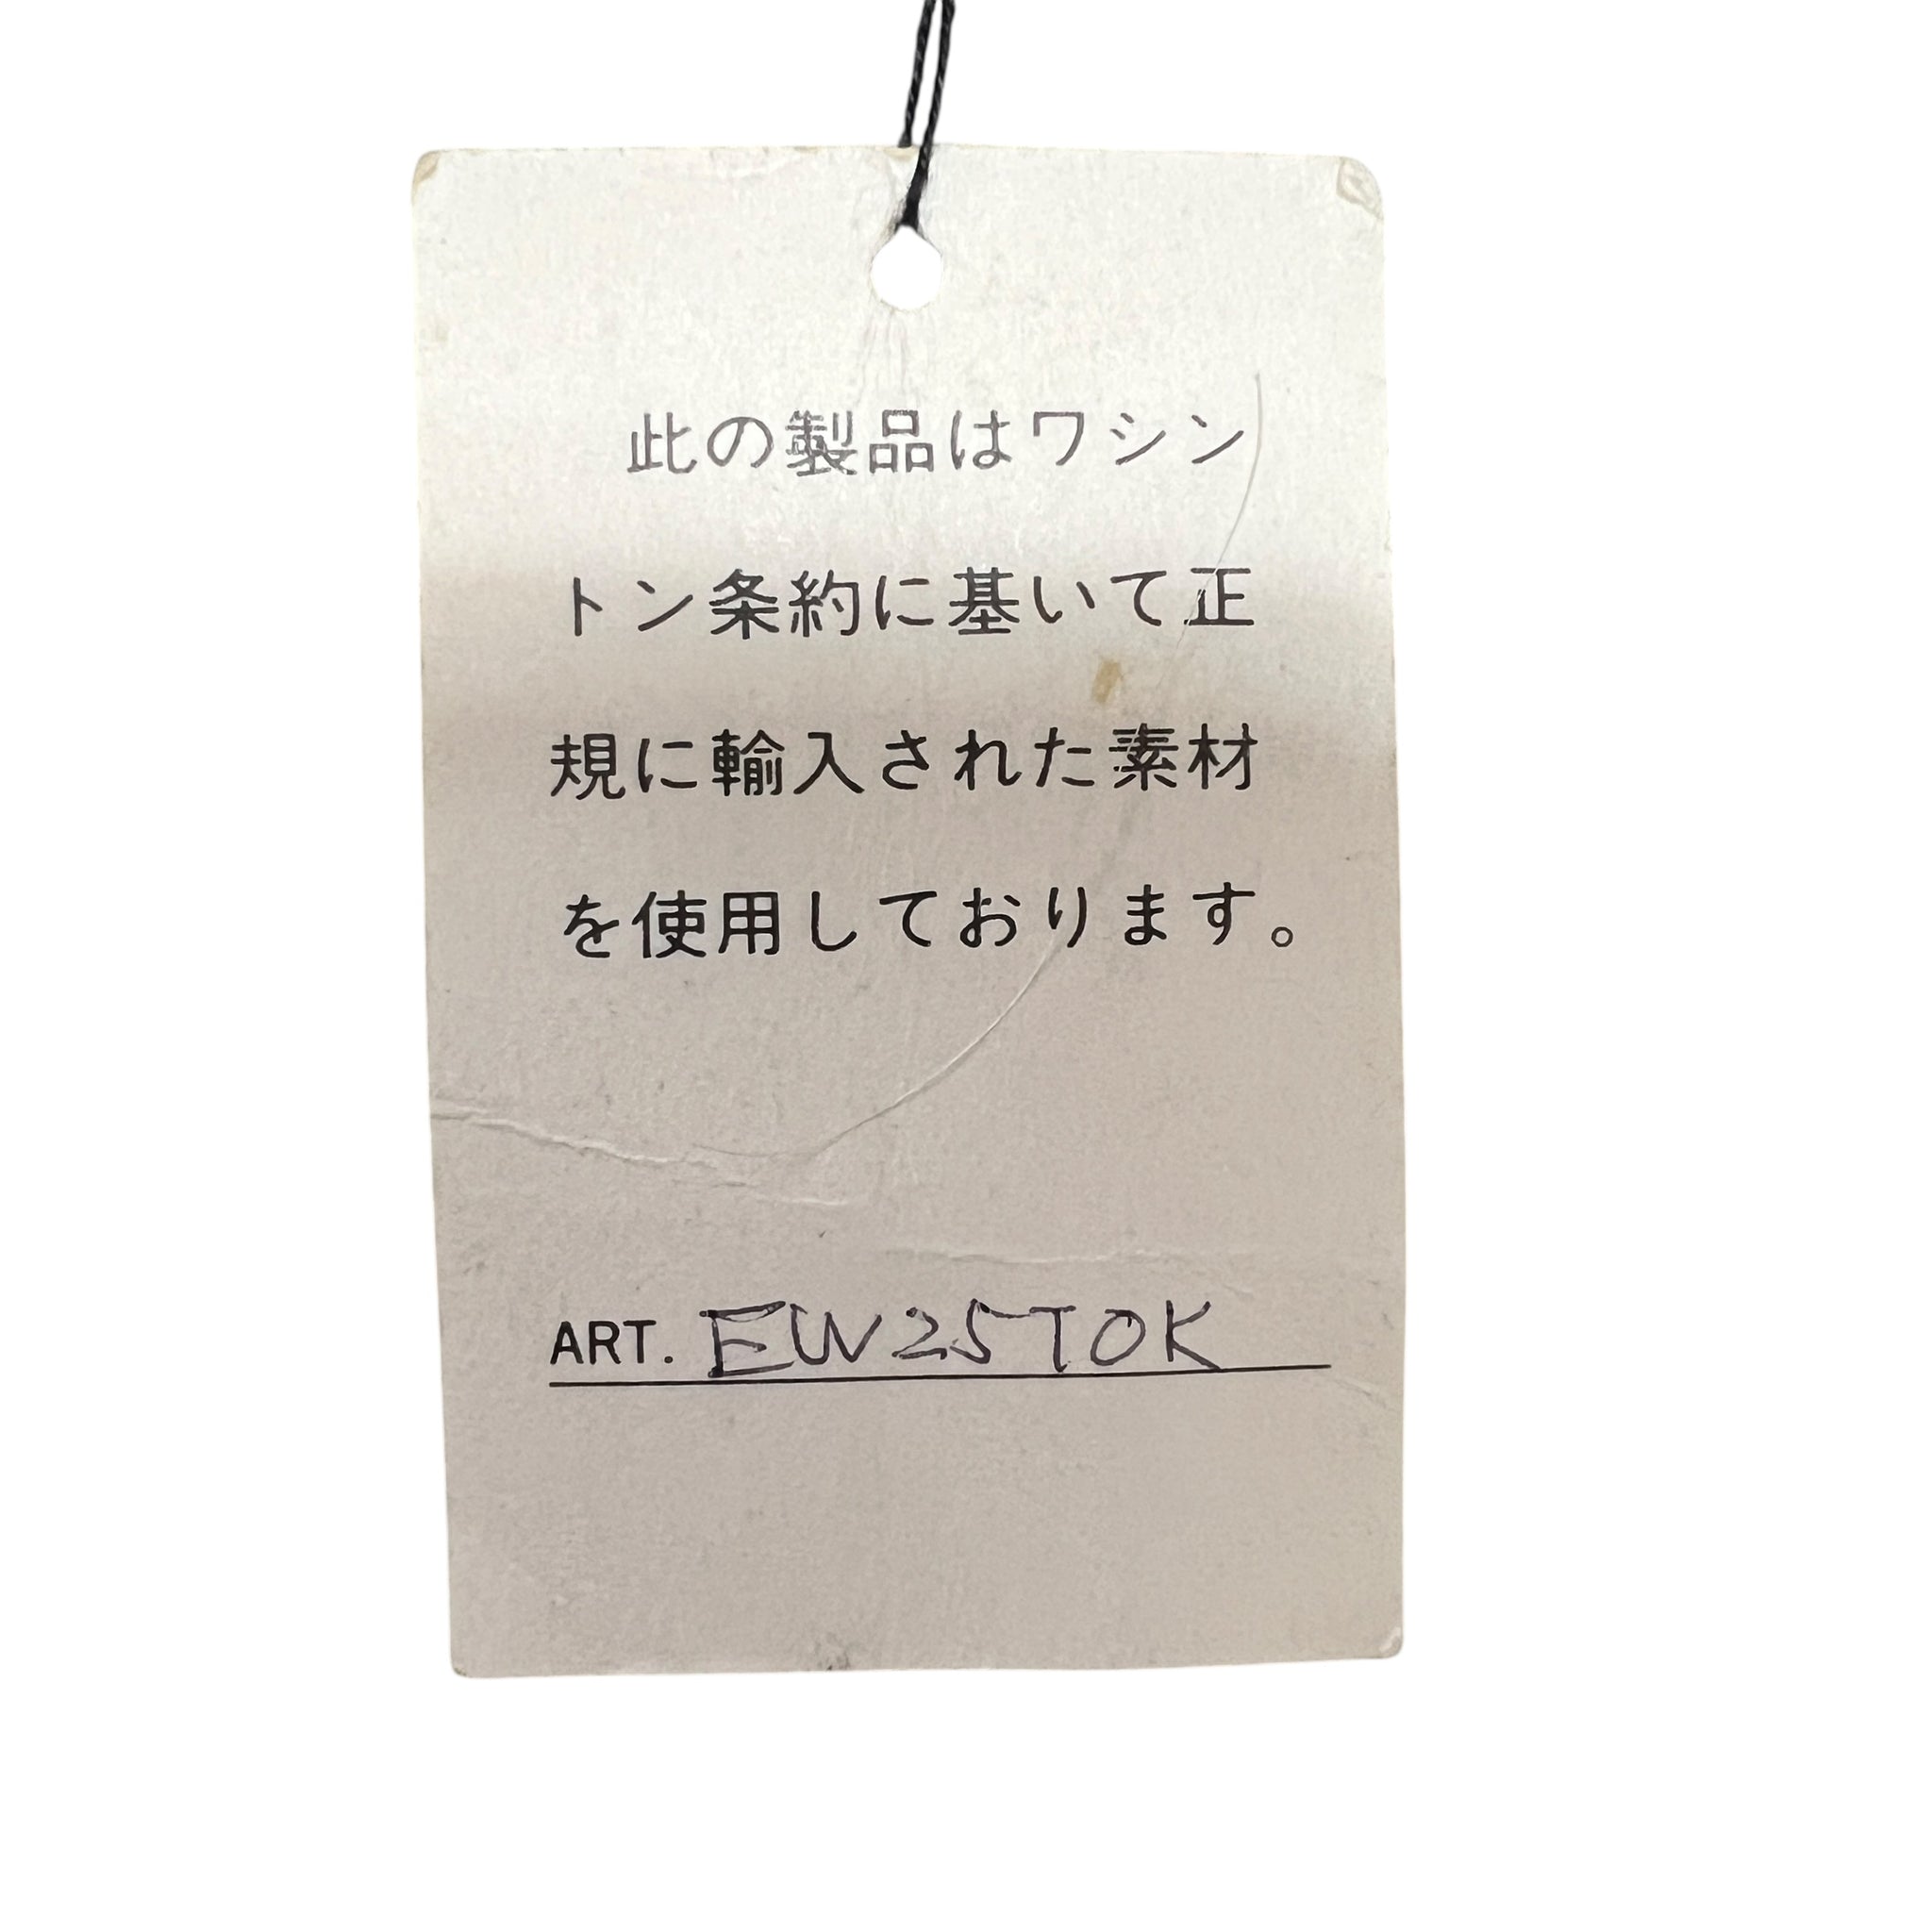 此の製品はワシン
トン条約に基いて正
規に輸入された素材
を使用しております。
ART. EW25TOK